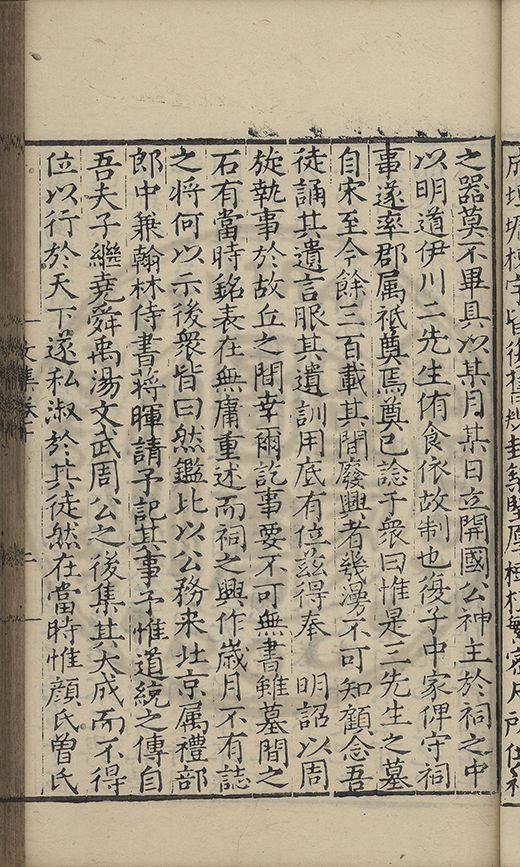 之器莫不畢具以某月某日立開國公神主於祠之中
以明道伊川二先生侑食依故制也復子中家俾守祠
事遂率郡属祗奠焉奠已諗于衆曰惟是三先生之墓
自宋至今餘三百載其間廢興者幾湧不可知顧念吾
徒誦其遺言服其遺訓用底有位茲得奉　明詔以周
旋執事於故丘之間幸爾訖事要不可無書雖墓間之
石有當時銘表在無庸重述而祠之興作歲月不有誌
之将何以示後衆皆曰然鑑比以公務来北京属禮部
郎中兼翰林侍書蔣暉請予記其事予惟道統之傳自
吾夫子繼堯舜禹湯文武周公之後集其大成而不得
位以行於天下遂私淑於其徒然在當時惟顔氏曽氏